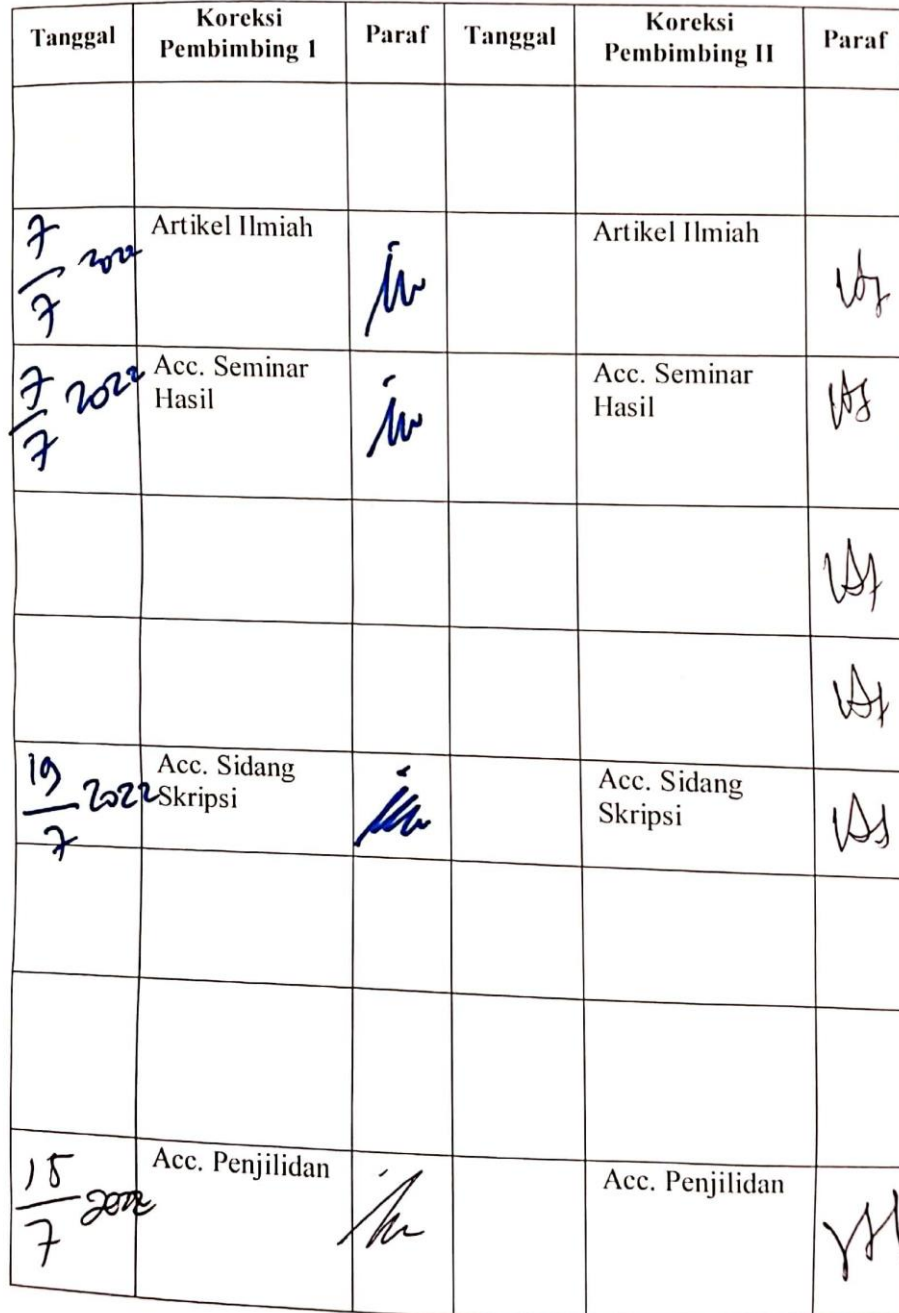 Tanggal Koreksi Pembimbing 1 Paraf Tanggal Koreksi Pembimbing II Paraf
7/7 2022 Artikel Ilmiah Artikel Ilmiah
7/7 2022 Acc. Seminar Hasil Acc. Seminar Hasil
19/7 2022 Acc. Sidang Skripsi Acc. Sidang Skripsi
15/7 2022 Acc. Penjilidan Acc. Penjilidan